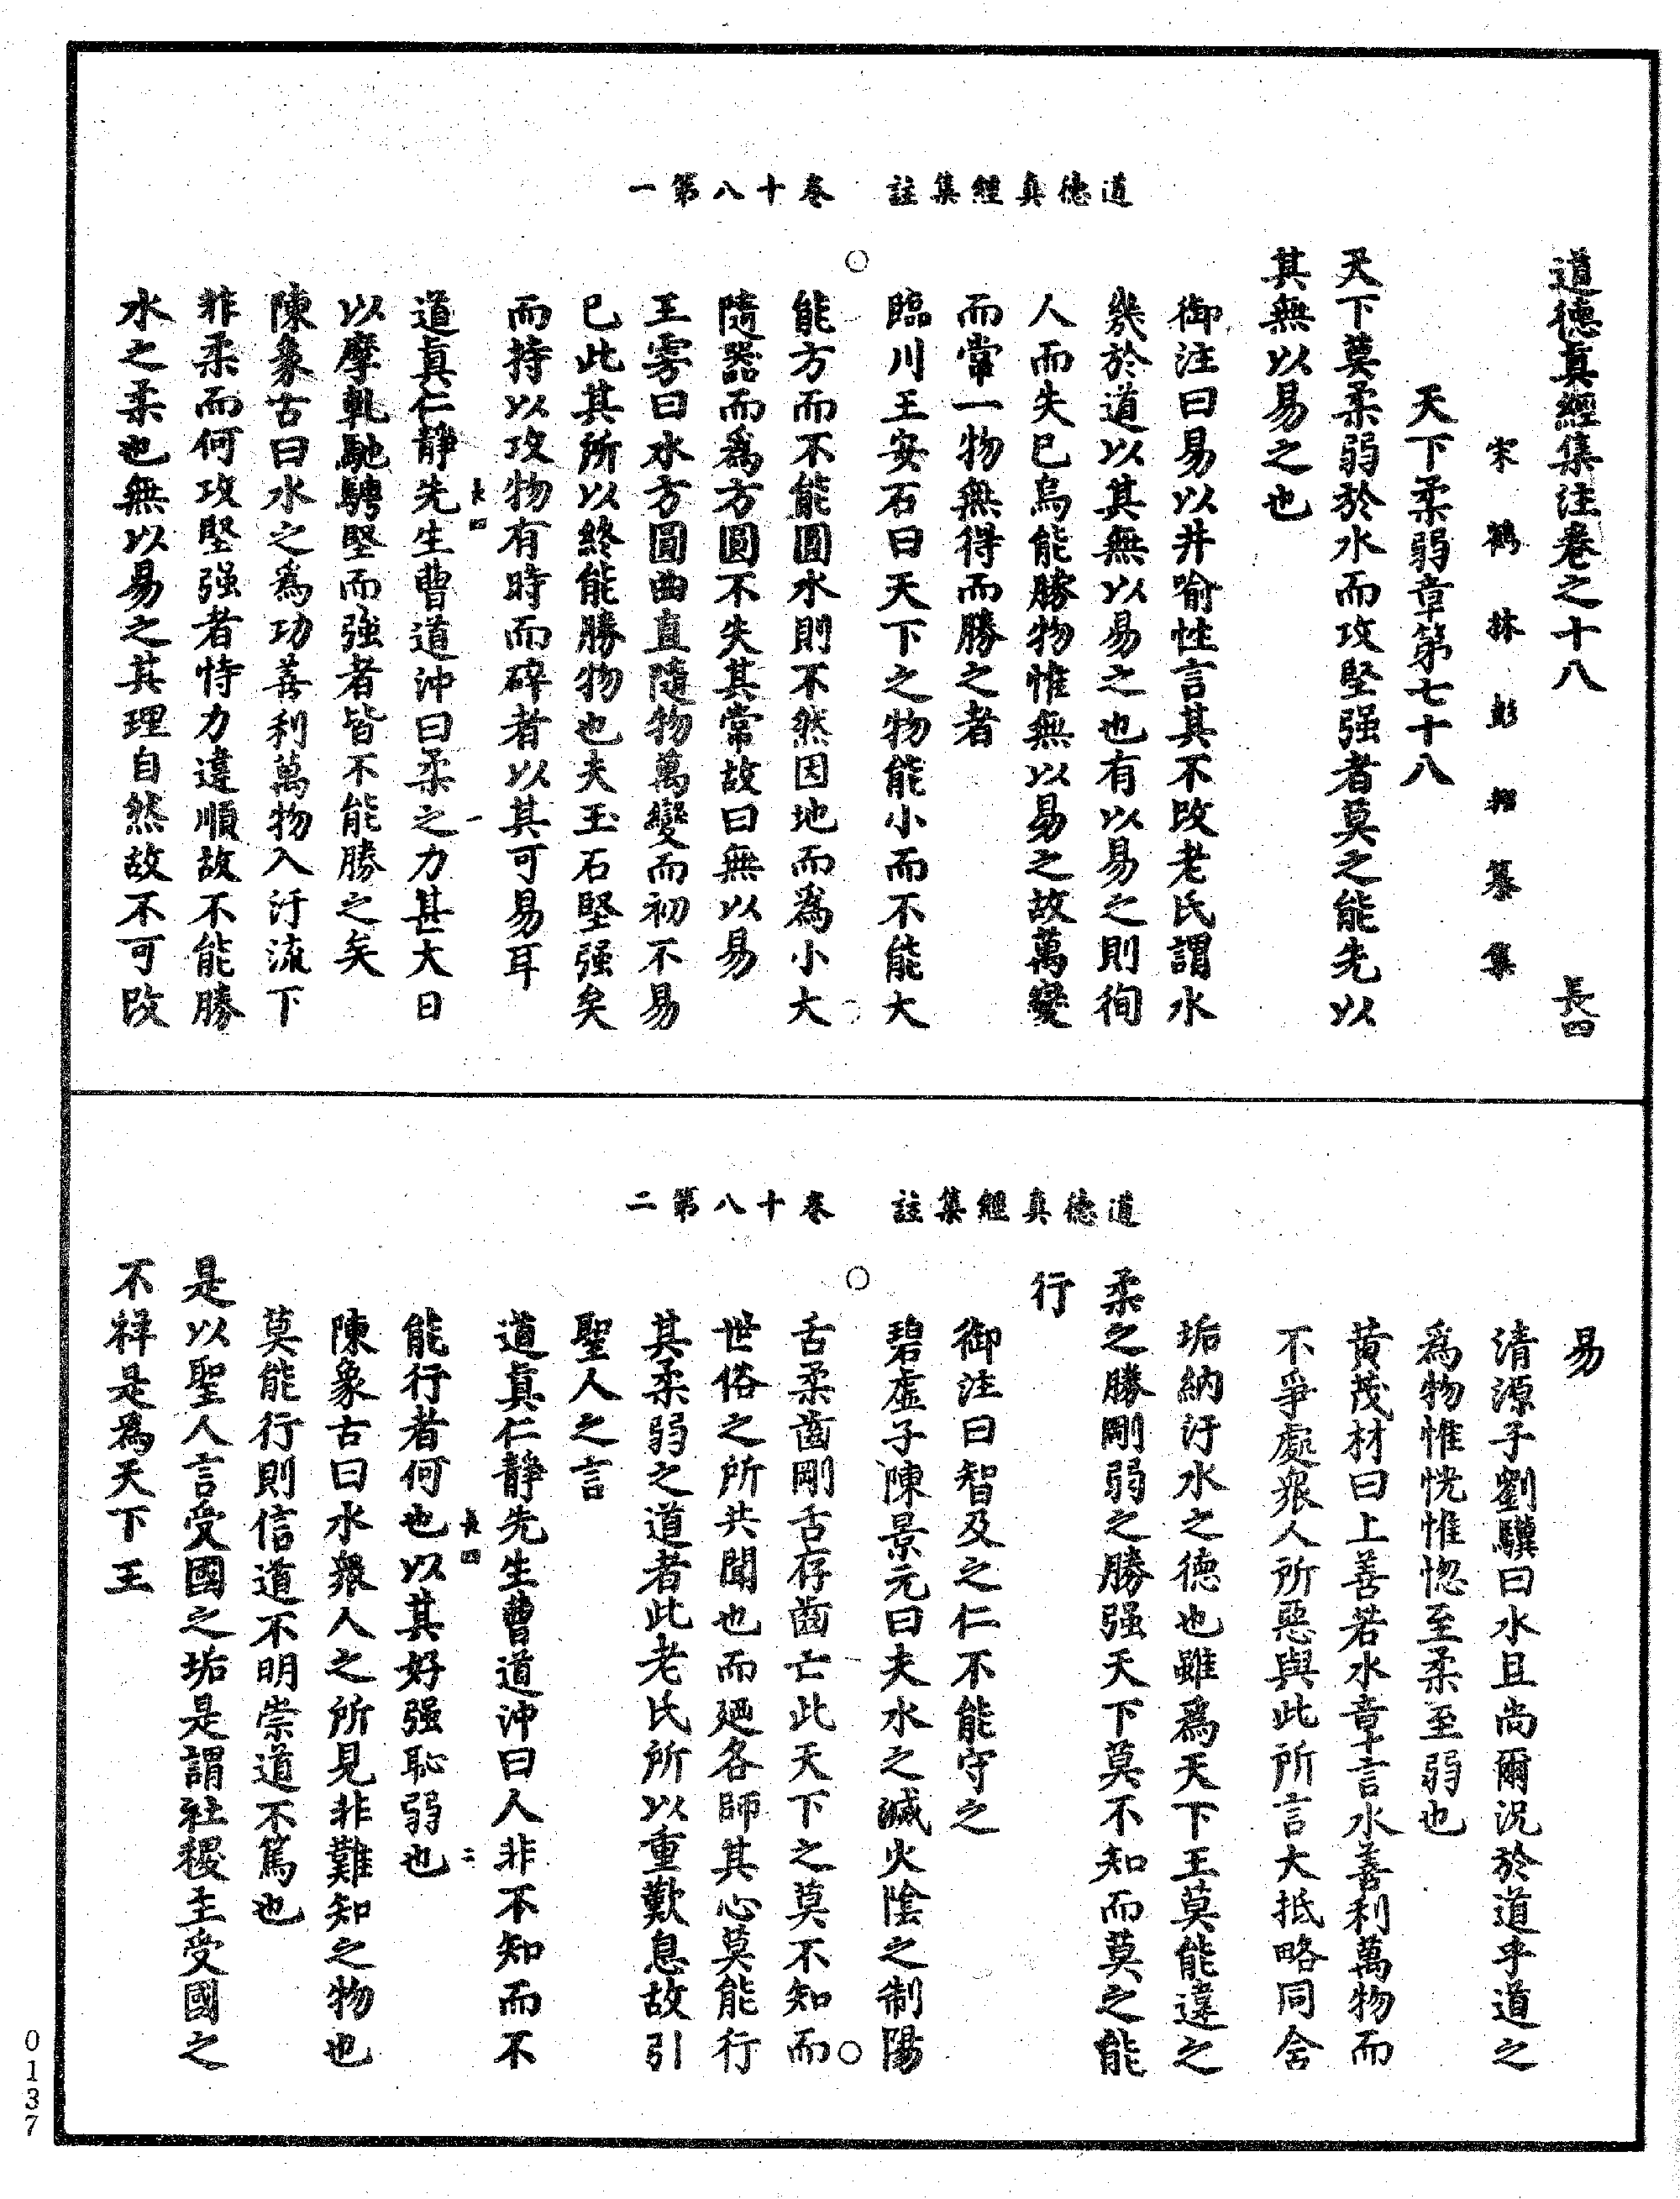 道德真經集註　卷十八第一
道德真經集注卷之十八　長四
宋鶴林彭耜纂集
天下柔弱章第七十八
天下莫柔弱於水而攻堅强者莫之能先以
其無以易之也
御注曰易以井喻性言其不改老氏謂水
幾於道以其無以易之也有以易之則徇
人而失已烏能勝物惟無以易之故萬變
而常一物無得而勝之者
臨川王安石曰天下之物能小而不能大
能方而不能圓水則不然因地而爲小大
隨器而爲方圓不失其常故曰無以易
王雱曰水方圓曲直隨物萬變而初不易
已此其所以終能勝物也夫玉石堅强矣
而持以攻物有時而碎者以其可易耳
長四　一
道真仁靜先生曹道沖曰柔之力甚大日
以摩軋馳騁堅而強者皆不能勝之矣
陳象古曰水之爲功善利萬物入汙流下
非柔而何攻堅强者恃力違順故不能勝
水之柔也無以易之其理自然故不可改
道德真經集註　卷十八第二
易
清源子劉驥曰水且尚爾況於道乎道之
爲物惟恍惟惚至柔至弱也
黄茂材曰上善若水章言水善利萬物而
不爭處衆人所惡與此所言大抵略同含
垢納汙水之德也雖爲天下王莫能違之
柔之勝剛弱之勝强天下莫不知而莫之能
行
御注曰智及之仁不能守之
碧虛子陳景元曰夫水之滅火陰之制陽
舌柔齒剛舌存齒亡此天下之莫不知而
世俗之所共聞也而廼各師其心莫能行
其柔弱之道者此老氏所以重歎息故引
聖人之言
道真仁靜先生曹道沖曰人非不知而不
長四　二
能行者何也以其好强恥弱也
陳象古曰水衆人之所見非難知之物也
莫能行則信道不明崇道不篤也
是以聖人言受國之垢是謂社稷主受國之
不祥是爲天下王
0137